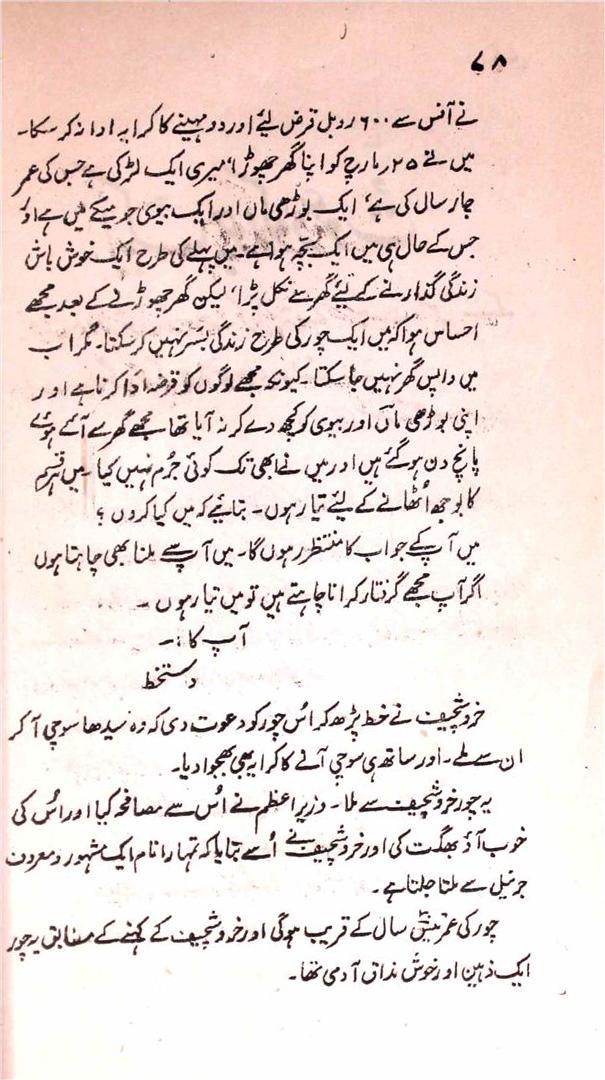 ۷۸
نے آفس سے ۶۰۰ روبل قرض لیئے اور دو مہینے کا کرایہ ادا نہ کر سکا۔
میں نے ۲۵ر مارچ کو اپنا گھر چھوڑا‘ میری ایک لڑکی ہے جس کی عمر
چار سال کی ہے‘ ایک بوڑھی ماں اور ایک بیوی جو میکے میں ہے اور
جس کے حال ہی میں ایک بچّہ ہوا ہے۔ میں پہلے کی طرح ایک خوش باش
زندگی گذارنے کے لیئے گھر سے نکل پڑا‘ لیکن گھر چھوڑنے کے بعد مجھے
احساس ہوا کہ میں ایک چور کی طرح زندگی بسر نہیں کر سکتا۔ مگر اب
میں واپس گھر نہیں جا سکتا۔ کیونکہ مجھے لوگوں کو قرضہ ادا کرنا ہے اور
اپنی بوڑھی ماں اور بیوی کو کچھ دے کر نہ آیا تھا مجھے گھر سے آئے ہوئے
پانچ دن ہو گئے ہیں اور میں نے ابھی تک کوئی جُرم نہیں کیا۔ میں ہر قسم
کا بوجھ اُٹھانے کے لیئے تیار ہوں۔ بتایئے کہ میں کیا کروں ؟
میں آپ کے جواب کا منتظر رہوں گا۔ میں آپ سے ملنا بھی چاہتا ہوں
اگر آپ مجھے گرفتار کرانا چاہتے ہیں تو میں تیار ہوں ۔
آپ کا :۔
دستخط
خروشچیف نے خط پڑھ کر اُس چور کو دعوت دی کہ وہ سیدھا سوچی آ کر
ان سے ملے۔ اور ساتھ ہی سوچی آنے کا کرایہ بھی بھجوا دیا۔
یہ چور خروشچیف سے ملا۔ وزیر اعظم نے اُس سے مصافحہ کیا اور اُس کی
خوب آؤ بھگت کی اور خروشچیف نے اُسے بتایا کہ تمہارا نام ایک مشہور و معروف
جرنیل سے ملتا جلتا ہے۔
چور کی عمر سال کے قریب ہو گی اور خروشچیف کے کہنے کے مطابق یہ چور
ایک ذہین اور خوش مذاق آدمی تھا۔